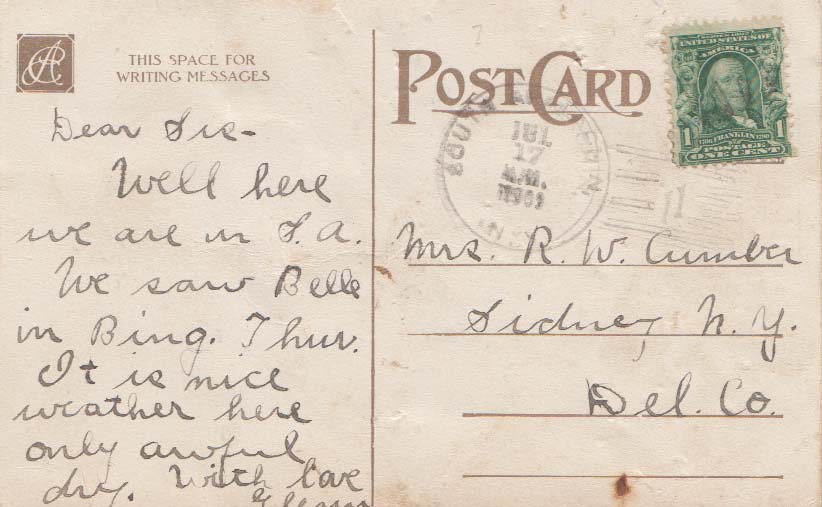 THIS SPACE FOR
WRITING MESSAGES
POST CARD
UNITED STATES OF
AMERICA
1
FRANKLIN
POSTAGE
ONE CENT
SOUTH
JUL
17
N.Y.
Dear Sis-
Well here
we are in S.A.
We saw Belle
in Bing. Thur.
It is nice
weather here
only awful
dry. With love
Mrs. R. W. Cumber
Sidney N. Y.
Del. Co.